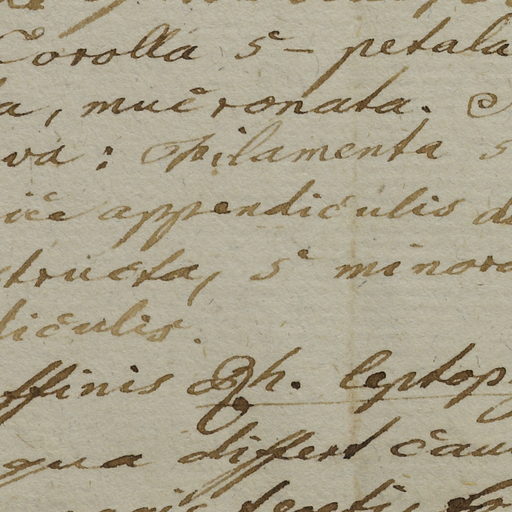 Corolla 5-petala
a, mucronata.
va: Filamenta 5
appendiculis
structa, 5 minora
diculis.
affinis Ph. leptop
qua differt cau